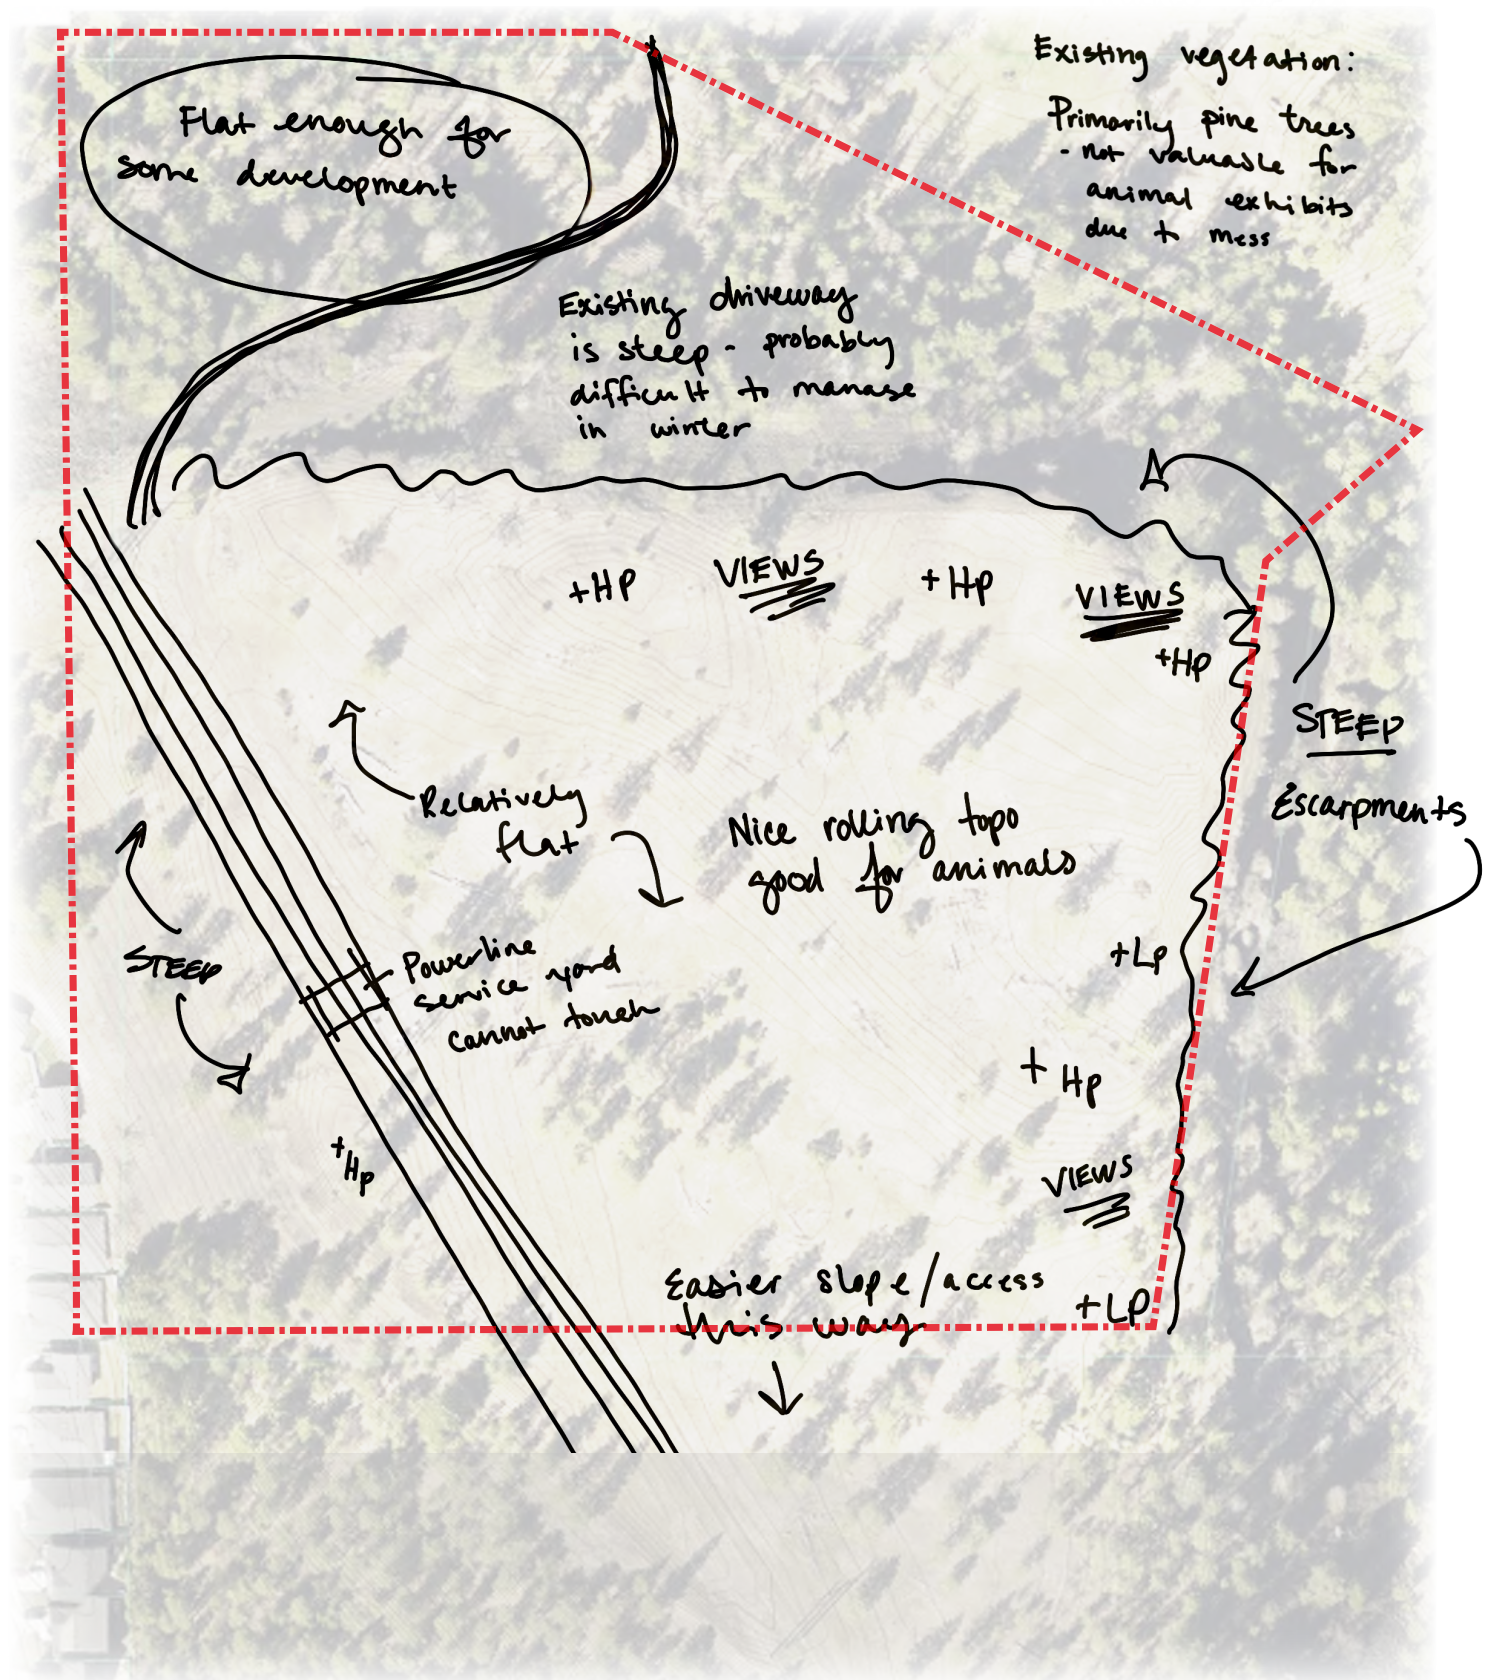 Existing vegetation:
Primarily pine trees
- not valuable for
animal exhibits
due to mess
Flat enough for
some development
Existing driveway
is steep - probably
difficult to manage
in winter
+HP
VIEWS
+Hp
VIEWS
+Hp
STEEP
Escarpments
Relatively
flat
Nice rolling topo
good for animals
STEEP
Powerline
service yard
cannot touch
+Lp
+ Hp
+Hp
VIEWS
Easier slope/access
this way
+LP